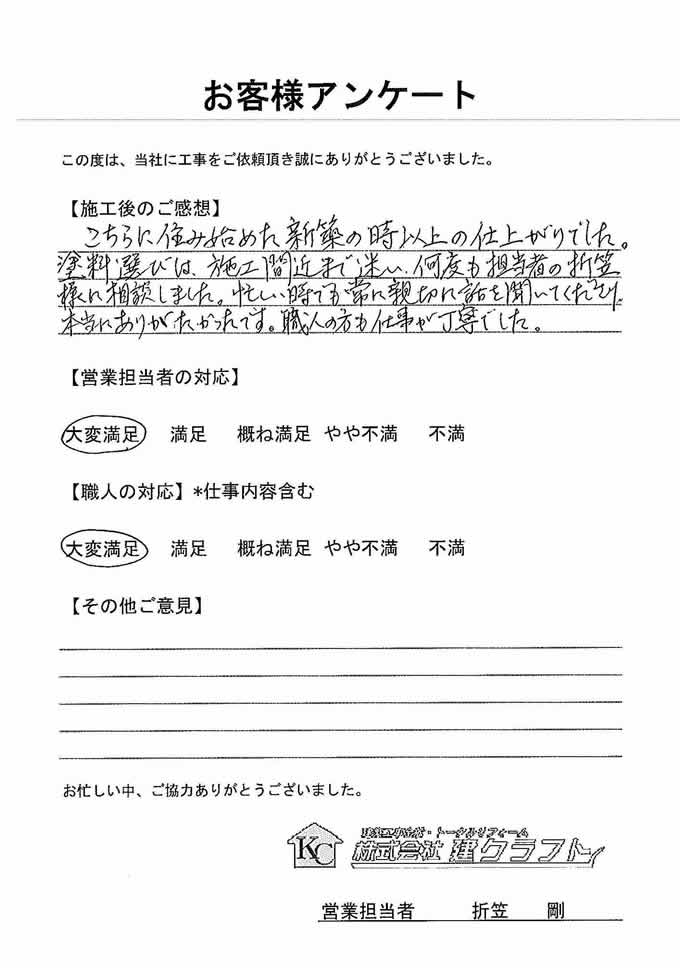 お客様アンケート
この度は、当社に工事をご依頼頂き誠にありがとうございました。
【施工後のご感想】
こちらに住み始めた新築の時以上の仕上がりでした。
塗料選びは、施工間近まで迷い、何度も担当者の折笠
様に相談しました。忙しい時でも常に親切に話を聞いてくださり、
本当にありがたかったです。職人の方も仕事が丁寧でした。
【営業担当者の対応】
大変満足 満足 概ね満足 やや不満 不満
【職人の対応】*仕事内容含む
大変満足 満足 概ね満足 やや不満 不満
【その他ご意見】
お忙しい中、ご協力ありがとうございました。
KC
・トータルリフォーム
株式会社 建クラフト
営業担当者 折笠 剛